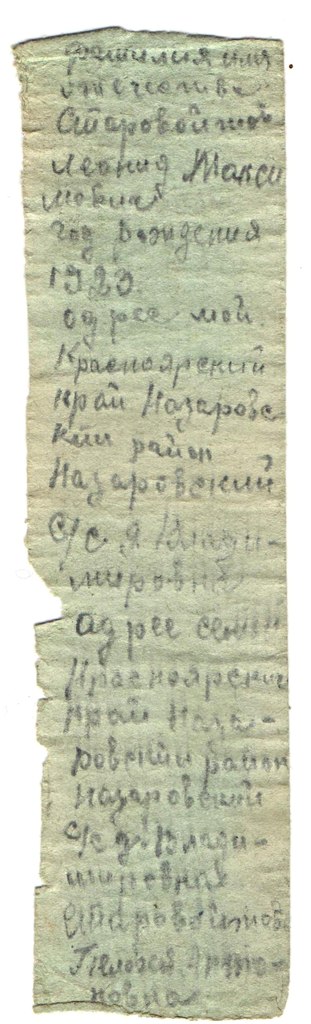 фамилия имя
отечества
Старовойтов
Леонид Макси
мович
год рождения
1923.
одрес мой
Красноярский
край Назаровс
кии район
Назаровский
с/с д Влади-
мировка
адрес семи
Красноярский
край Наза-
ровский район
Назаровский
с/с д. Влади-
мировка
Старовойтова